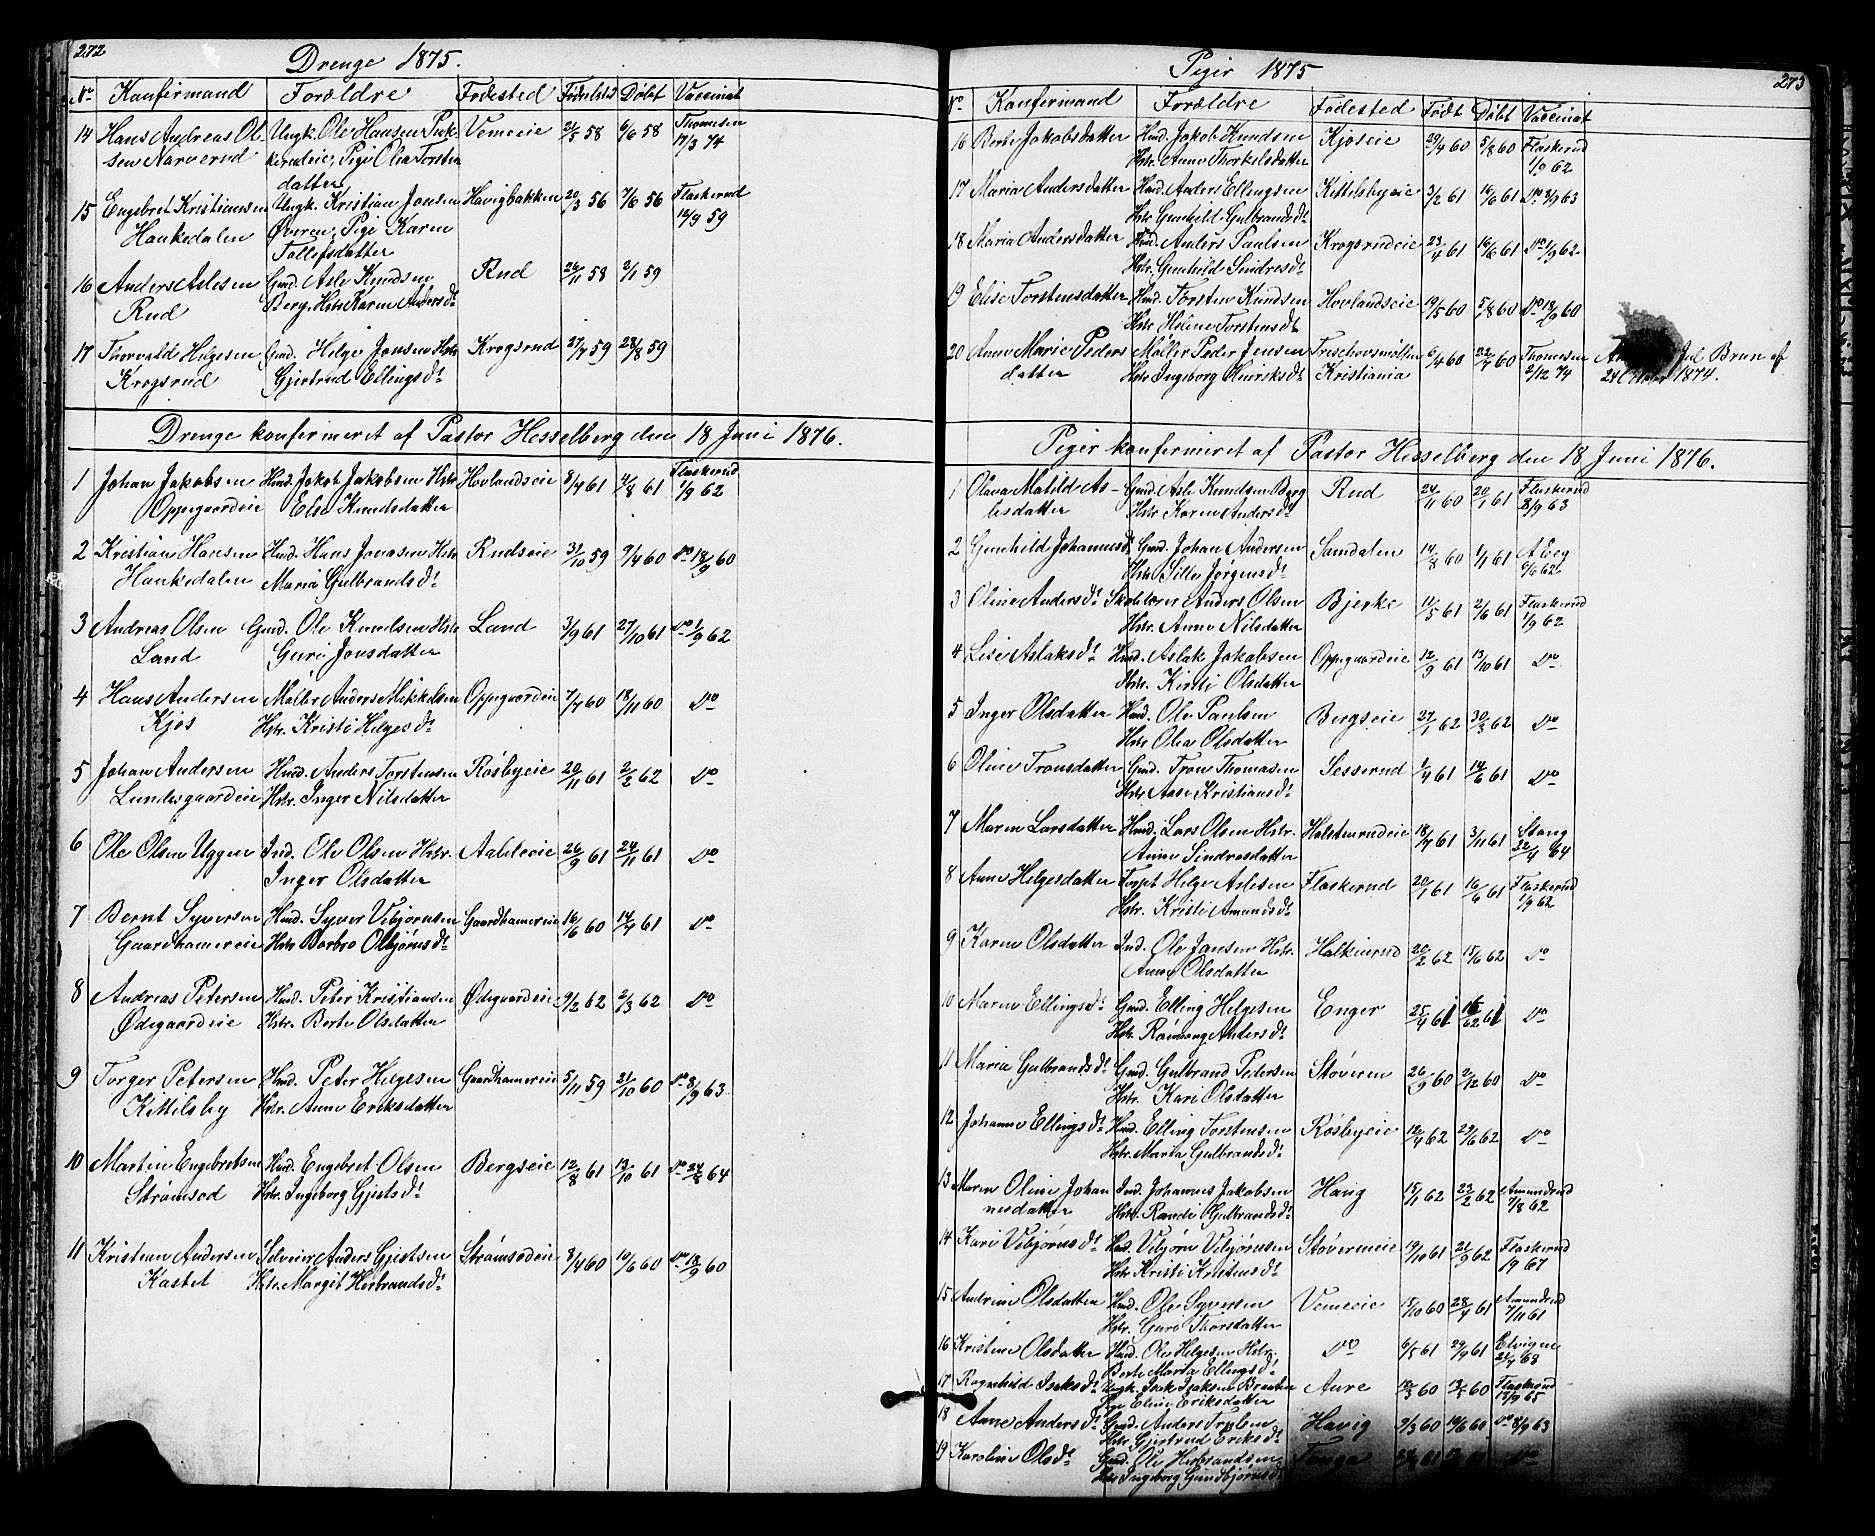 272
Drenge 1875.
No Konfirmand Forældre Fødested Fødselstid Døbt Vaccinat
14 Hans Andreas Ol- Ungk. Ole Hansen Vemeie 2/5 58 6/6 58 Thomesen
sen Narverud Pige Olea Torsten 17/3 74
datter
15 Engebret Kristiansen Ungk. Kristian Jonsen Havigbakken 20/3 56 7/6 56 Flaskerud
Haukedalen Øveren, Pige Karen 12/9 59
Tollefsdatter
16 Anders Aslesen Gmd. Asle Knudsen Rud 26/11 58 2/1 59
Rud Berg, Hstr Karen Andersdt
17 Thorvald Helgesen Gmd. Helge Jonsen Hstr Krogsrud 27/7 59 28/8 59
Krogsrud Gjertrud Ellingsdt
Drenge konfirmeret af Pastor Hesselberg den 18 Juni 1876.
1 Johan Jakobsen Hmd. Jakob Jakobsen Hstr Hovlandseie 8/4 61 4/8 61 Flaskerud
Oppegaardeie Else Knudsdatter 1/9 62
2 Kristian Hansen Hmd. Hans Jonasen Hstr Rudseie 31/10 59 9/4 60 Do 18/9 60
Haukedalen Maria Gulbrandsdt
3 Andreas Olsen Gmd. Ole Knudsen Hstr Land 3/9 61 27/10 61 Do 1/9 62
Land Guri Jonsdatter
4 Hans Andersen Møller Anders Mikkelsen Oppegaardeie 7/7 60 18/11 60 Do
Kjos Hstr. Kristi Helgesdt
5 Johan Andersen Hmd. Anders Torstensen Røsbyeie 20/11 61 2/2 62 Do
Lundesgaardeie Hstr. Inger Nilsdatter
6 Ole Olsen Uggen Ind. Ole Olsen Hstr. Aableeie 26/9 61 24/11 61 Do
Inger Olsdatter
7 Bernt Syversen Hmd. Syver Vebjørnsen Gaardhamereie 16/6 60 14/7 61 Do
Gaardhamereie Hstr Barbro Olbjørnsdt
8 Andreas Petersen Hmd. Peter Kristiansen Ødegaardeie 9/2 62 2/3 62 Do
Ødegaardeie Hstr. Berte Olsdatter
9 Torger Petersen Hmd. Peter Helgesen Gaardhamereie 5/11 59 21/10 60 Do 8/9 63.
Kittelsby Hstr. Anne Eriksdatter
10 Martin Engebretsen Hmd. Engebret Olsen Bergseie 12/8 61 13/10 61 Do 24/8 64
Strømsod Hstr. Ingeborg Gjestsdt
11 Kristian Andersen Selveier Anders Gjestsen Strømsodeie 8/4 60 10/6 60 Do 18/9 60
Kastet Hstr. Margit Herbrandsdt
273
Piger 1875
No. Konfirmand Forældre Fødested Født Døbt Vaccinat
16 Berte Jakobsdatter Hmd. Jakob Knudsen Kjoseie 29/4 60 5/8 60 Flaskerud
Hstr. Anne Thorkelsdatter 1/9 62
17 Maria Andersdatter Hmd. Anders Ellingsen Kittelsbyeie 3/2 61 16/6 61 Do 8/9 63
Hstr Gunhild Gulbrandsdt
18 Maria Andersdatter Hmd. Anders Paulsen Krogsrudeie 23/4 61 16/6 61 Do 1/9 62.
Hstr. Gunhild Sindresdt
19 Elise Torstensdatter Hmd. Torsten Knudsen Hovlandseie 19/5 60 5/8 60 Do 18/9 60
Hstr Helene Torstensdt
20 Anne Marie Peders Møller Peder Jensen Treschowsmøllen 6/4 60 22/7 60 Thomesen Jul Brun af
datter Hstr Ingeborg Henriksdt Kristiania 2/12 74 24 October 1874.
Piger konfirmeret af Pastor Hesselberg den 18 Juni 1876.
1 Olava Matild As- Gmd. Asle Knudsen Berg Rud 24/11 60 20/1 61 Flaskerud
lesdatter Hstr Karen Andersdt 8/9 63
2 Gunhild Johannesdt Gmd. Johan Andersen Samdalen 14/8 60 1/1 61 A Eeg
Hstr Sille Jørgensdt 6/6 62
3 Oline Andersdt Skolelærer Anders Olsen Bjerke 11/5 61 2/6 61 Flaskerud
Hstr. Anne Nilsdatter 1/9 62
4 Lise Aslaksdt Hmd. Aslak Jakobsen Oppegaardeie 12/9 61 13/10 61 Do
Hstr. Kirsti Olsdatter
5 Inger Olsdatter Hmd. Ole Paulsen Bergseie 27/1 62 30/3 62 Do
Hstr Olea Olsdatter
6 Oline Tronsdatter Gmd. Tron Thomasen Sesserud 1/4 61 14/6 61 Do
Hstr Aase Kristiansdt
7 Maren Larsdatter Hmd. Lars Olsen Hstr. Halstenrudeie 18/7 61 3/11 61 Stang
Anne Sindresdatter 22/4 64
8 Anne Helgesdatter Torpt Helge Aslesen Flaskerud 20/1 61 16/6 61 Flaskerud
Hstr. Kristi Amundsdt 1/9 62
9 Karen Olsdatter Ind. Ole Jansen Hstr. Halkinrud 20/2 62 15/6 62 Do
Anne Olsdatter
10 Maren Ellingsdt Gmd. Elling Helgesen Enger 25/4 61 61 Do
Hstr. Rønnaug Andersdt
11 Maria Gulbrandsdt Gmd. Gulbrand Petersen Støveren 26/9 60 2/12 60 Do
Hstr. Kari Olsdatter
12 Johanne Ellingsdt Hmd. Elling Torstensen Røsbyeie 12/4 62 29/6 62 Do
Hstr. Maria Gulbrandsdt
13 Maren Oline Johan Ind. Johannes Jakobsen Haug 15/1 62 23/2 62 Amundrud
nesdatter Hstr. Randi Gulbrandsdt 7/8 62
14 Kari Vebjørnsdt Hmd. Vebjørn Vebjørnsen Støvereneie 19/10 61 21/9 62 Flaskerud
Hstr. Kristi Kristensdt 19 67
15 Andrine Olsdatter Hmd. Ole Syversen Vemeeie 15/10 60 28/4 61 Amundrud
Hstr. Guri Thorsdatter 7/11 61
16 Kristine Olsdatter Hmd. Ole Helgesen Hstr. Do 6/5 61 29/9 61 Elvigne
Berte Marta Ellingsdt 21/9 68
17 Ragnhild Isaksdt Ungk. Isak Isaksen Braaten Aure 12/3 60 13/5 60 Flaskerud
Pige Eline Eriksdatter 17/9 65
18 Anne Andersdt Gmd. Anders Truls­en Havig 9/3 60 10/6 60 Do 8/9 63
Hstr. Gjertrud Eriksdt
19 Karoline Olsdt Gmd. Ole Herbrandsen 61 61 Do
Hstr Ingeborg Gundbjørnsdt